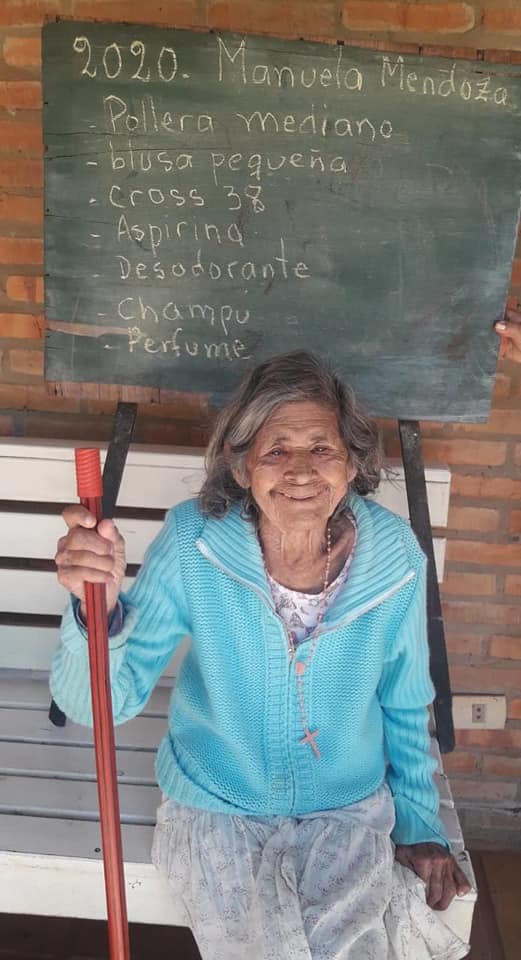 2020. Manuela Mendoza
- Pollera mediano
- blusa pequeña
- Cross 38
- Aspirina
- Desodorante
- Champú
- Perfume